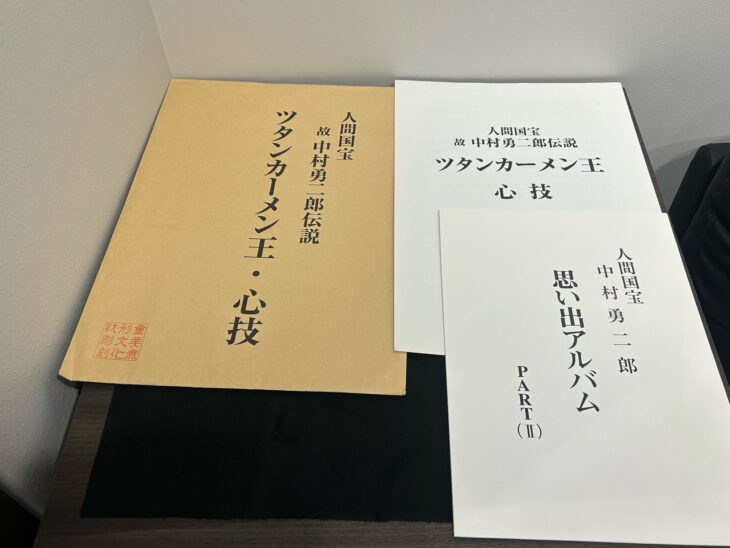 人間国宝
故 中村勇二郎伝説
ツタンカーメン王・心技
重要無
形文化
財彫刻
人間国宝
故 中村勇二郎伝説
ツタンカーメン王
心技
人間国宝
中村勇二郎
思い出アルバム
PART(Ⅱ)